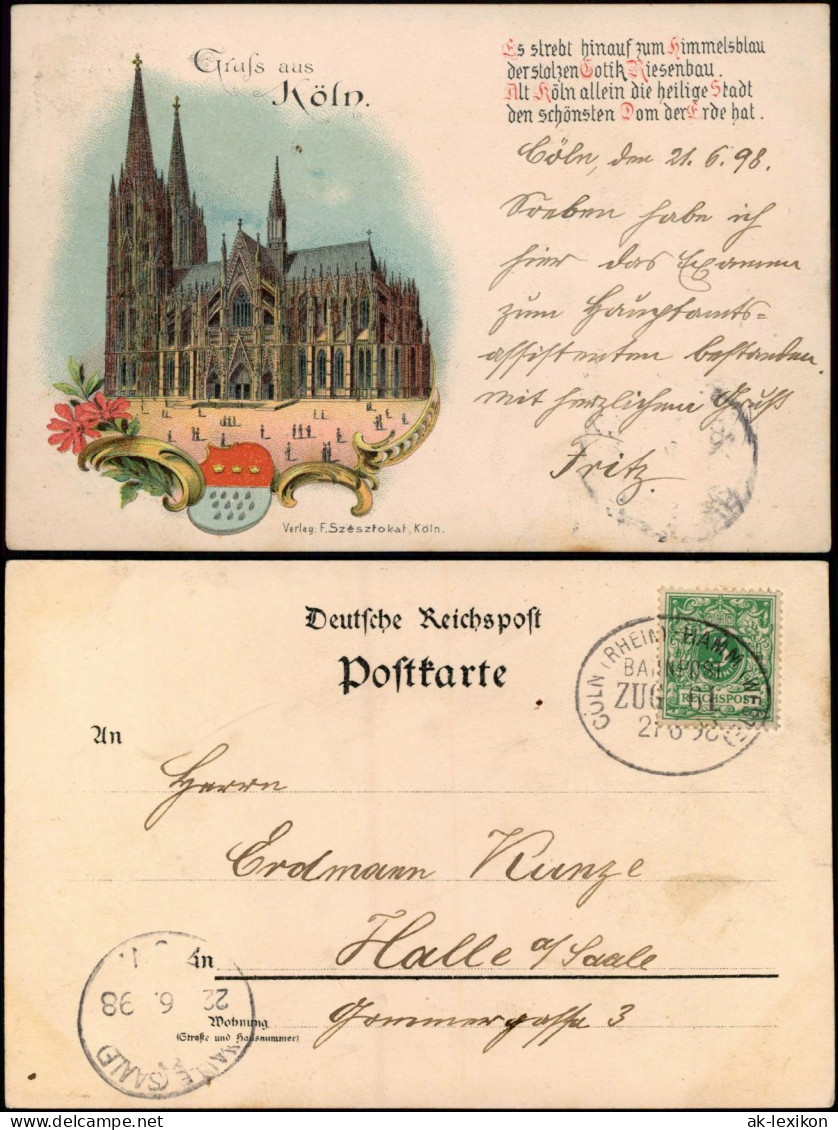 Gruss aus
Köln.
Es strebt hinauf zum Himmelsblau
der stolzen Gotik Riesenbau.
Alt Köln allein die heilige Stadt
den schönsten Dom der Erde hat.
Cöln, den 21. 6. 98.
Soeben habe ich
hier das Examen
zum Hauptamts=
assistenten bestanden.
Mit herzlichem Gruß
Fritz.
Verlag: F. Szesztokat, Köln.
Deutsche Reichspost
Postkarte
CÖLN (RHEIN) HAMM
BAHNPOST
ZUG
21 6 98
REICHSPOST
An
Herrn
Erdmann Kunze
in Halle a/Saale
Wohnung
(Straße und Hausnummer)
Gommergasse 3
22. 6. 98
(SAALE)
www.ak-ansichtskarten.de
ak-lexikon